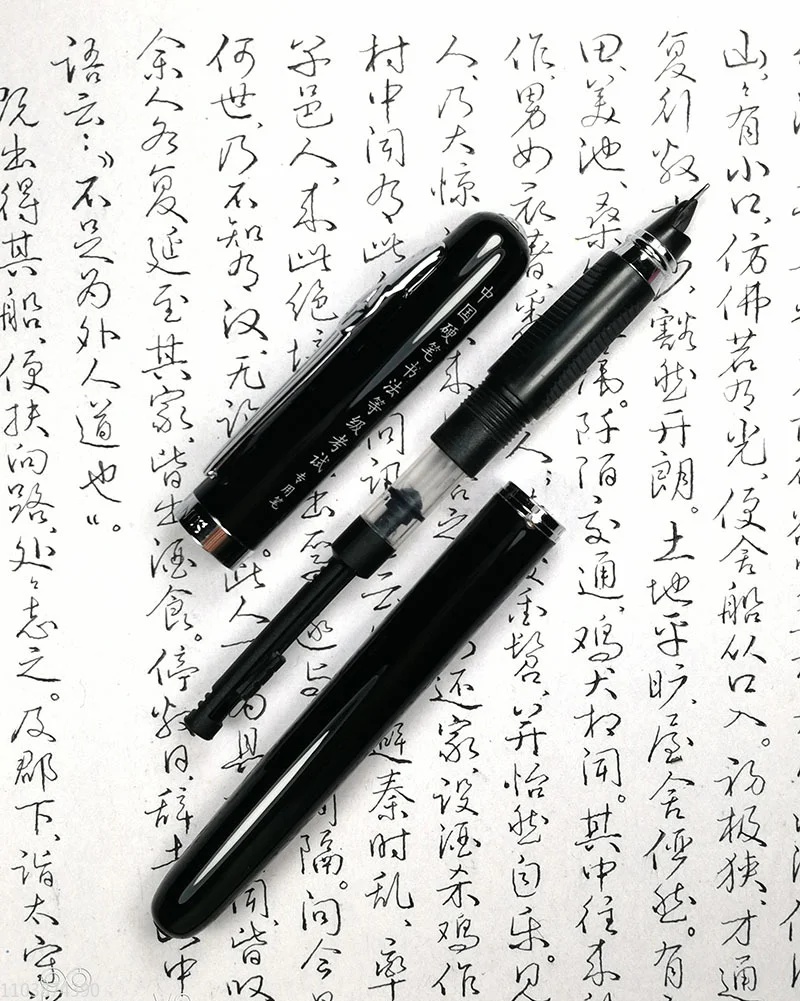 山，々有小口，仿佛若有光，便舍船从口入。初极狭，才通
复行数 豁然开朗。土地平旷，屋舍俨然。有
田、美池、桑 属。阡陌交通，鸡犬相闻。其中往来
作，男女衣着，悉 人；垂髫，并怡然自乐。见
人，乃大惊 来 答之 还家，设酒杀鸡作
村中闻有此 问讯 云 避秦时乱，率
子邑人来此绝境 出焉 间隔。问今是
何世，乃不知有汉，无论 。此人 为具 闻，皆叹
余人各复延至其家，皆出酒食。停数日，辞去 中
语云：“不足为外人道也”。
既出，得其船，便扶向路，处々志之。及郡下，诣太守
中国硬笔书法等级考试
专用笔